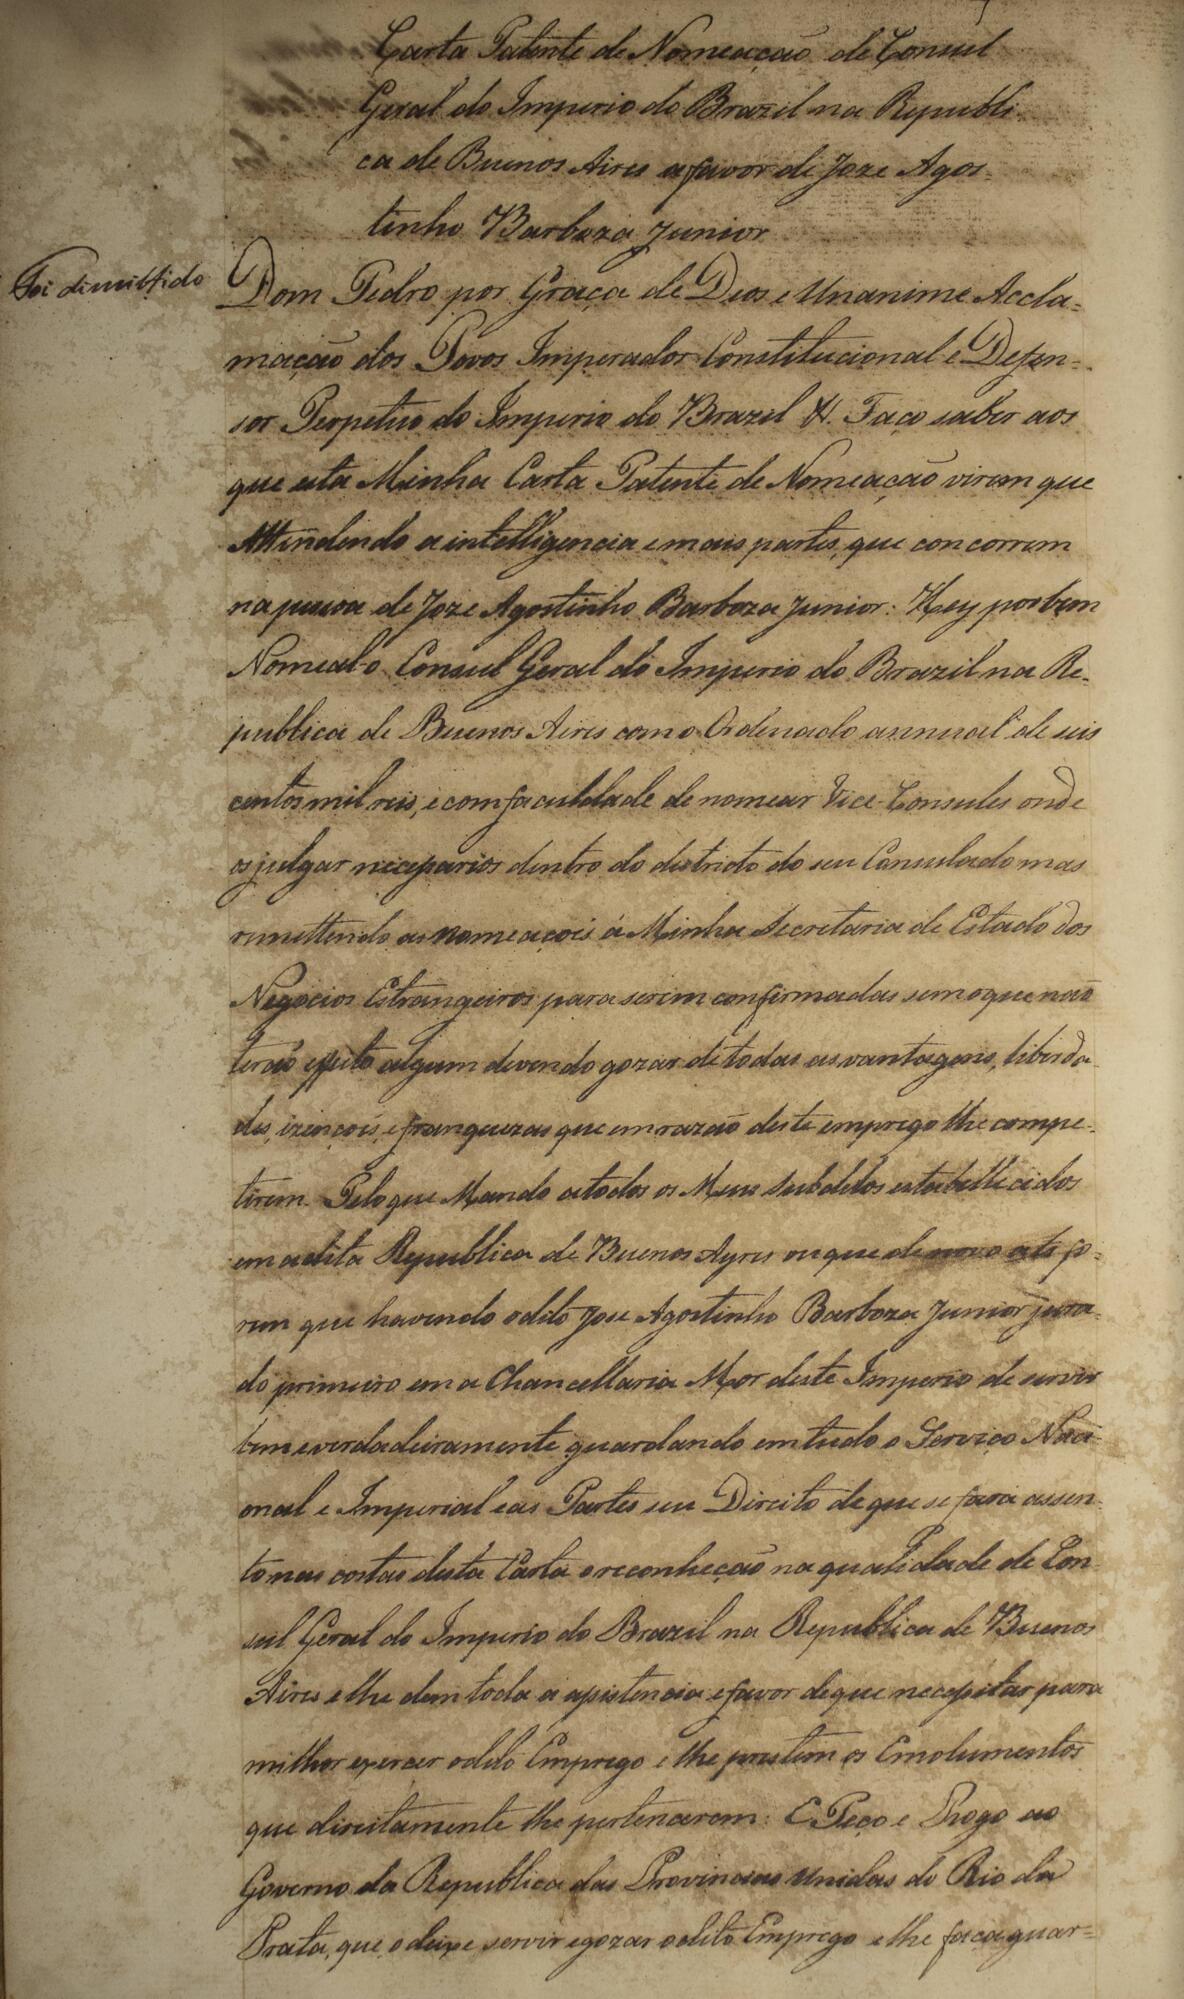 Carta Patente de Nomeação de Consul
Geral do Imperio do Brazil na Republi-
ca de Buenos Aires a favor de Joze Agos-
tinho Barboza Junior
Foi dimittido
Dom Pedro por Graça de Deos e Unanime Accla-
mação dos Povos Imperador Constitucional e Defen-
sor Perpetuo do Imperio do Brazil &. Faço saber aos
que esta Minha Carta Patente de Nomeação virem que
Attendendo a intelligencia e mais partes, que concorrem
na pessoa de Joze Agostinho Barboza Junior: Hey por bem
Nomeal-o Consul Geral do Imperio do Brazil na Re-
publica de Buenos Aires com o Ordenado annual de seis
centos mil reis, e com faculdade de nomear Vice-Consules onde
os julgar necessarios dentro do districto do seu Consulado mas
remettendo as nomeaçoẽs á Minha Secretaria de Estado dos
Negocios Estrangeiros para serem confirmadas sem o que naõ
teraõ effeito algum devendo gozar de todas as vantagens, liberda-
des, izençoẽs, e franquezas que em razaõ deste emprego lhe compe-
tirem. Pelo que Mando a todos os Meus Subditos estabellecidos
em a dita Republica de Buenos Ayres ou que de novo a ella fo-
rem que havendo o dito Jose Agostinho Barboza Junior jura-
do primeiro em a Chancellaria Mor deste Imperio de servir
bem e verdadeiramente guardando em tudo o Serviço Naci-
onal e Imperial e as Partes seu Direito de que se fará assen-
to nas costas desta Carta o reconheçaõ na qualidade de Con-
sul Geral do Imperio do Brazil na Republica de Buenos
Aires e lhe dem toda a assistencia e favor de que necessitar para
milhor exercer o dito Emprego e lhe prestem os Emolumentos
que direitamente lhe pertencerem: E Peço e Rogo ao
Governo da Republica das Provincias Unidas do Rio da
Prata, que o deixe servir e gozar o dito Emprego e lhe faça guar-